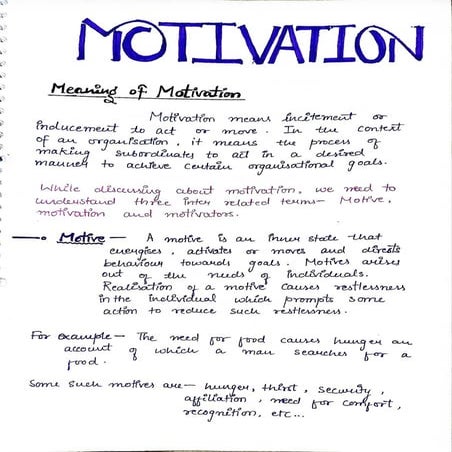 MOTIVATION
Meaning of Motivation
Motivation means incitement or
inducement to act or move. In the context
of an organisation, it means the process of
making subordinates to act in a desired
manner to achieve certain organisational goals.
While discussing about motivation, we need to
understand three inter related terms - Motive,
motivation and motivators.
Motive - A motive is an inner state that
energises, activates or moves and directs
behaviour towards goals. Motives arises
out of the needs of individuals.
Realisation of a motive causes restlessness
in the individual which prompts some
action to reduce such restlessness.
For example - The need for food causes hunger an
account of which a man searches for a
food.
Some such motives are - hunger, thirst, security,
affiliation, need for comfort,
recognition, etc...